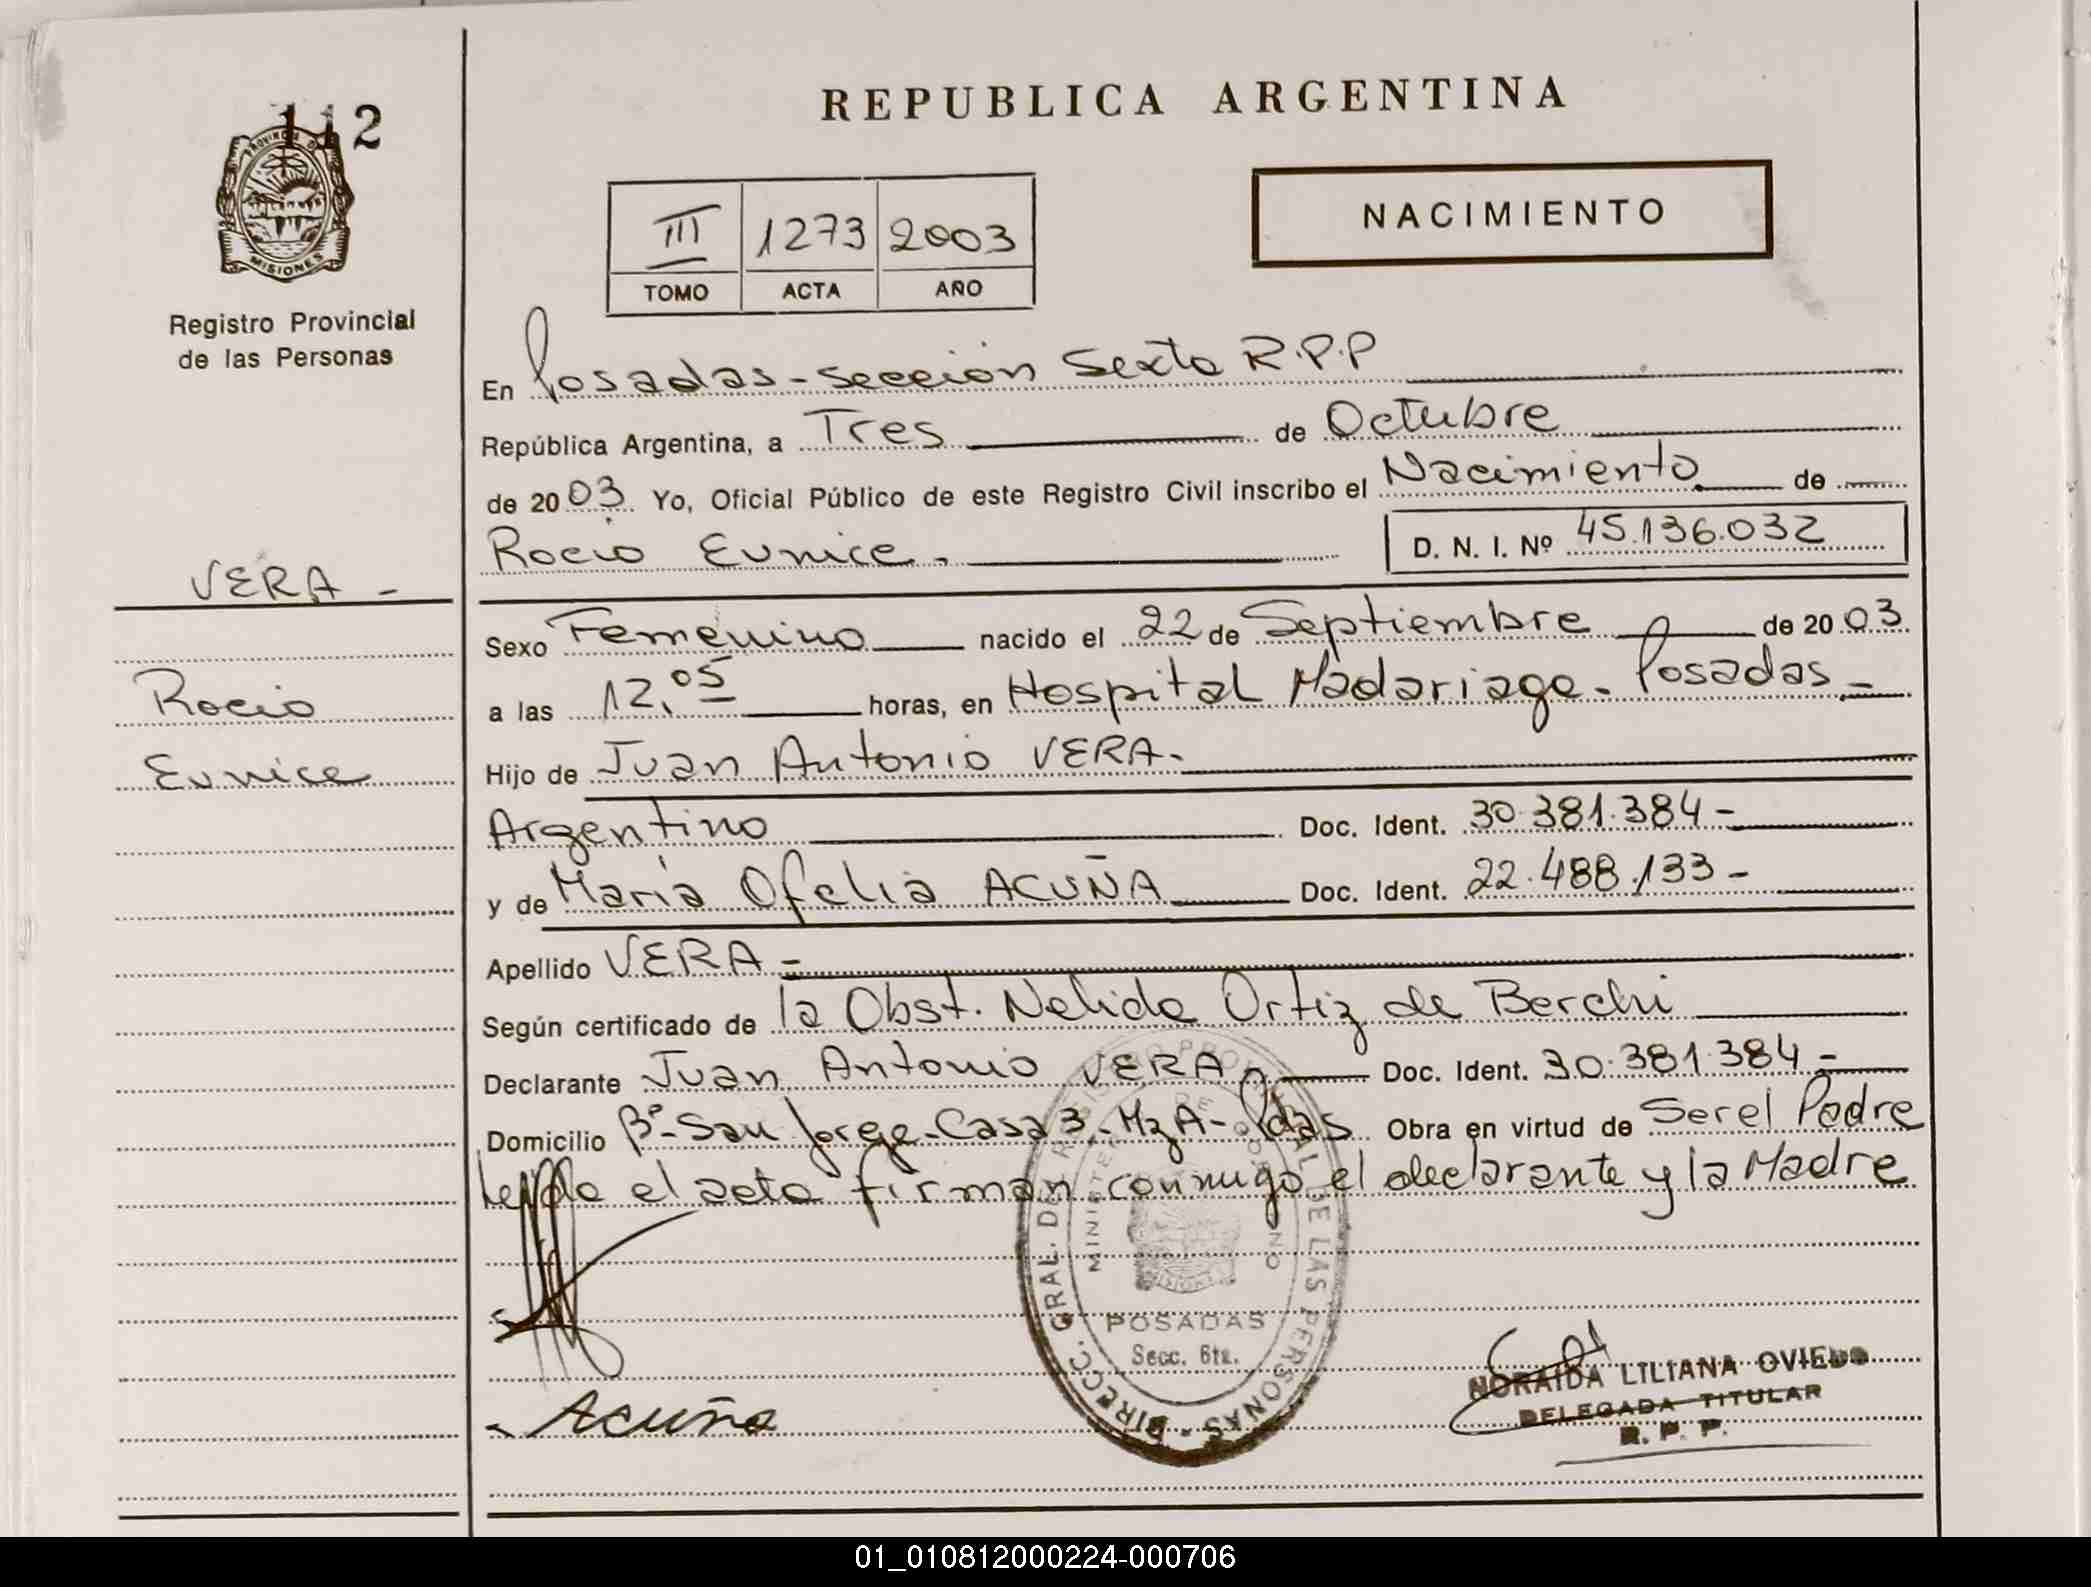 112
PROVINCIA DE
MISIONES
Registro Provincial
de las Personas
VERA -
Rocio
Eunice
REPUBLICA ARGENTINA
III 1273 2003
TOMO ACTA AÑO
NACIMIENTO
En Posadas - sección Sexta R.P.P
República Argentina, a Tres de Octubre
de 2003. Yo, Oficial Público de este Registro Civil inscribo el Nacimiento de
Rocio Eunice. D. N. I. Nº 45.136.032
Sexo Femenino nacido el 22 de Septiembre de 2003
a las 12,05 horas, en Hospital Madariaga - Posadas -
Hijo de Juan Antonio VERA -
Argentino Doc. Ident. 30.381.384 -
y de María Ofelia ACUÑA Doc. Ident. 22.488.133 -
Apellido VERA -
Según certificado de la Obst. Nelida Ortiz de Berchi
Declarante Juan Antonio VERA Doc. Ident. 30.381.384 -
Domicilio Bº San Jorge - Casa 3 - Mz A - Pdas Obra en virtud de Ser el Padre
Leida el acta firman conmigo el declarante y la Madre
DIRECC. GRAL. DE REGISTRO PROVINCIAL DE LAS PERSONAS -
MINISTERIO DE GOBIERNO
POSADAS
Secc. 6ta.
Acuña
NORAIDA LILIANA OVIEDO
DELEGADA TITULAR
R. P. P.
01_010812000224-000706